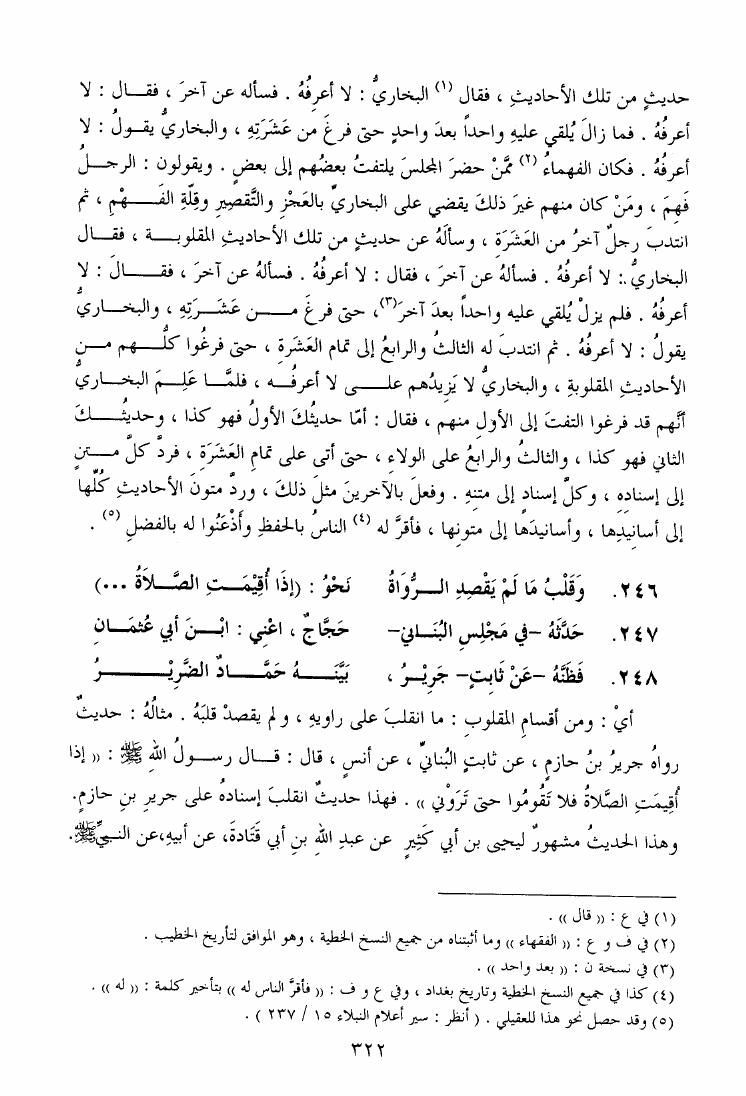 حديثٍ من تلك الأحاديثِ ، فقال (١) البخاريُّ : لا أعرفُهُ . فسأله عن آخرَ ، فقـــال : لا
أعرفُهُ . فما زالَ يُلقي عليهِ واحداً بعدَ واحدٍ حتى فرغَ من عَشَرَتِهِ ، والبخاريُّ يقــولُ : لا
أعرفُهُ . فكان الفهماءُ (٢) ممَّنْ حضرَ المجلسَ يلتفتُ بعضُهم إلى بعضٍ . ويقولون : الرجــلُ
فَهِمَ ، ومَنْ كان منهم غيرَ ذلكَ يقضي على البخاريِّ بالعَجْزِ والتَّقصيرِ وقِلَّةِ الفَـــهْمِ ، ثم
انتدبَ رجلٌ آخرُ من العَشَرَةِ ، وسألَهُ عن حديثٍ من تلك الأحاديثِ المقلوبــة ، فقــال
البخاريُّ : لا أعرفُهُ . فسألهُ عن آخرَ ، فقال : لا أعرفُهُ . فسألهُ عن آخرَ ، فقــــالَ : لا
أعرفُهُ . فلم يزلْ يُلقي عليه واحداً بعدَ آخرَ(٣)، حتى فرغَ مـــن عَشَـــرَتِهِ ، والبخــاريُّ
يقولُ : لا أعرفُهُ . ثم انتدبَ له الثالثُ والرابعُ إلى تمامِ العَشَرةِ ، حتى فرغُوا كلُّـــهم مـــن
الأحاديثِ المقلوبةِ ، والبخاريُّ لا يَزيدُهم علـــى لا أعرفُـــه ، فلمَّـــا عَلِـــمَ البخـــاريُّ
أنَّهم قد فرغوا التفتَ إلى الأولِ منهم ، فقال : أمّا حديثُكَ الأولُ فهو كذا ، وحديثُــــكَ
الثاني فهو كذا ، والثالثُ والرابعُ على الولاءِ ، حتى أتى على تمامِ العَشَرَةِ ، فردَّ كلَّ مـــتنٍ
إلى إسناده ، وكلَّ إسنادٍ إلى متنِهِ . وفعلَ بالآخرينَ مثلَ ذلكَ ، وردَّ متونَ الأحاديثِ كُلِّها
إلى أسانيدِها ، وأسانيدَها إلى متونِها ، فأقرَّ له (٤) الناسُ بالحفظِ وأَذْعَنُوا له بالفضلِ (٥) .
٢٤٦. وَقَلْبُ مَا لَمْ يَقْصِدِ الـــرُّوَاةُ نَحْوُ : (إذَا أُقِيْمَـــتِ الصَّـــلاَةُ ...)
٢٤٧. حَدَّثَهُ -في مَجْلِسِ البُنَــانيْ- حَجَّاجٌ ، اعْنِي : ابْـــنَ أبي عُثمَـــانِ
٢٤٨. فَظَنَّهُ -عَنْ ثَابِتٍ- جَرِيْـــرُ ، بَيَّنَـــــهُ حَمَّـــــادٌ الضَّرِيْـــــرُ
أيْ : ومن أقسامِ المقلوبِ : ما انقلبَ على راويهِ ، ولم يقصدْ قلبَهُ . مثالُهُ : حديثٌ
رواهُ جريرُ بنُ حازمٍ ، عن ثابتٍ البُنانيِّ ، عن أنسٍ ، قال : قـــال رســـولُ اللهِ ﷺ : (( إذا
أُقيمَتِ الصَّلاةُ فلا تَقُومُوا حتى تَرَوْني )) . فهذا حديثٌ انقلبَ إسنادُهُ على جريرِ بنِ حازمٍ.
وهذا الحديثُ مشهورٌ ليحيى بن أبي كَثِيرٍ عن عبدِ اللهِ بنِ أبي قَتَادةَ، عن أبيهِ،عن النـــبيِّ ﷺ.
(١) في ع : (( قال )) .
(٢) في ف و ع : (( الفقهاء )) وما أثبتناه من جميع النسخ الخطية ، وهو الموافق لتأريخ الخطيب .
(٣) في نسخة ن : (( بعد واحد )) .
(٤) كذا في جميع النسخ الخطية وتاريخ بغداد ، وفي ع و ف : (( فأقرَّ الناس له )) بتأخير كلمة : (( له )) .
(٥) وقد حصل نحو هذا للعقيلي . ( أنظر : سير أعلام النبلاء ١٥ / ٢٣٧ ) .
٣٢٢